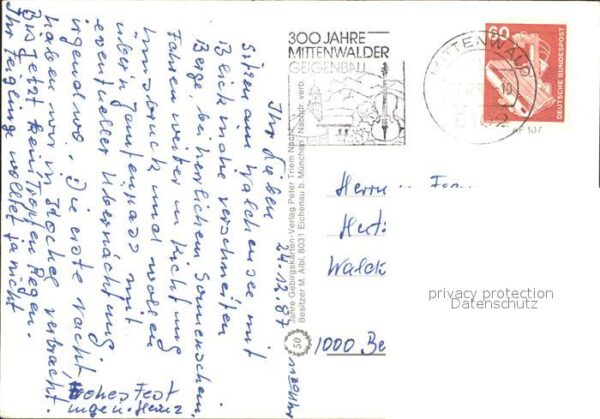 Ihr Lieben 24.12.87
Sitzen am Walchensee mit
Blick in die verschneiten
Berge, bei herrlichem Sonnenschein.
Fahren weiter in Richtung
Innsbruck und wollen
übern Jaufenpass mit
eventueller Übernachtung
irgendwo. Die erste Nacht
haben wir in Kochel verbracht.
Bis jetzt keinen Tropfen Regen.
Ihr Feiglinge wolltet ja nicht
Frohes Fest
Heinz
300 JAHRE
MITTENWALDER
GEIGENBAU
MITTENWALD
8102
60
DEUTSCHE BUNDESPOST
50 Jahre Gebirgskarten-Verlag Peter Triem Nachf.
Besitzer M. Aibl, 8031 Eichenau b. München, Nachdr. verb.
50
Herrn u. Frau
Walck
1000 Be
privacy protection
Datenschutz